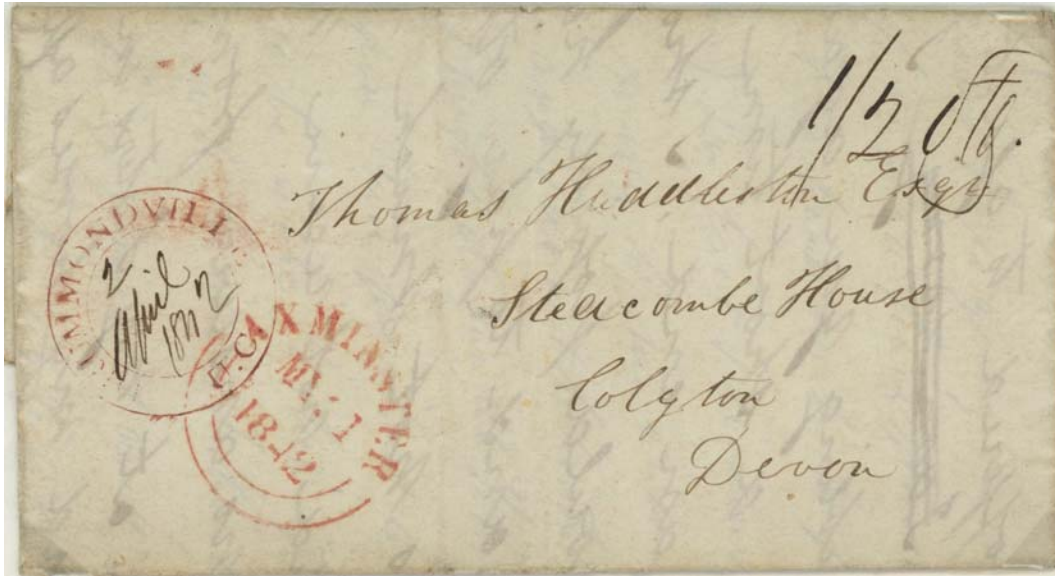 1/2
Thomas Huddleston Esqr
Steacombe House
Colyton
Devon
DRUMMONDVILLE U.C.
2
April
1842
AXMINSTER
MY 1
1842